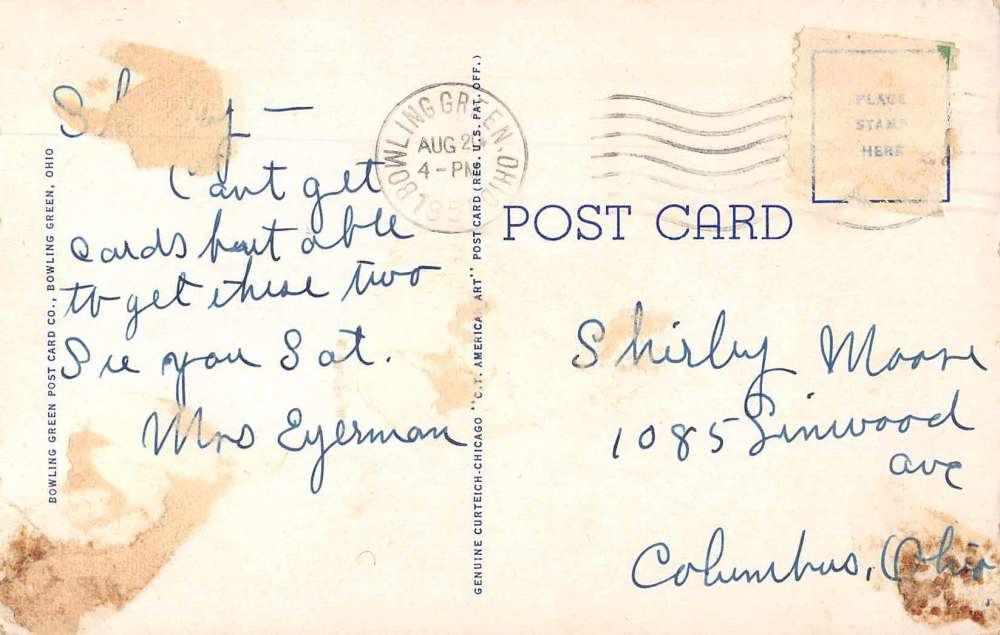 Can't get
cards but able
to get these two
See you Sat.
Mrs Eyerman
BOWLING GREEN POST CARD CO., BOWLING GREEN, OHIO
GENUINE CURTEICH-CHICAGO "C.T. AMERICAN ART" POST CARD (REG. U.S. PAT. OFF.)
BOWLING GREEN, OHIO
AUG
4-PM
PLACE
STAMP
HERE
POST CARD
Shirley Moore
1085 Linwood
ave
Columbus, Ohio